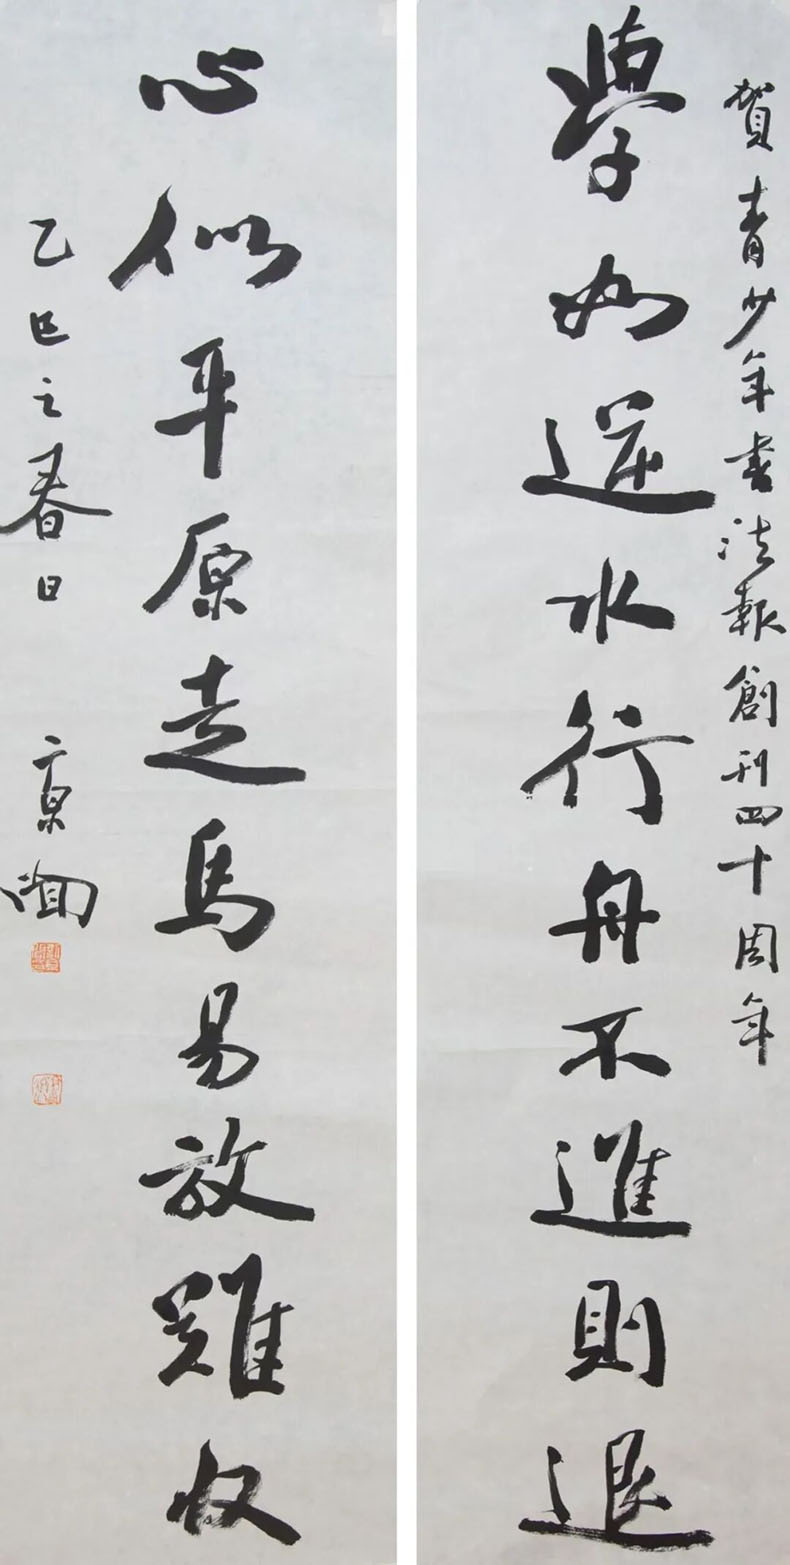 賀青少年書法報創刊四十周年
學如逆水行舟不進則退
心似平原走馬易放難收
乙巳之春日